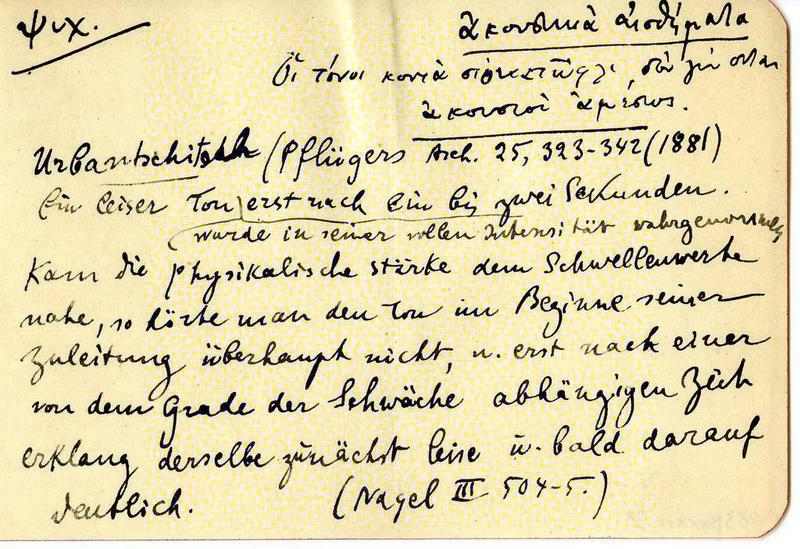 ψυχ.
ἀκουστικὰ αἰσθήματα
Οἱ τόνοι κοντὰ
ἀκουστοὶ ἀμέσως.
Urbantschitsch (Pflügers Arch. 25, 323-342 (1881)
Ein leiser Ton erst nach ein bis zwei Sekunden.
wurde in seiner vollen Intensität wahrgenommen
Kam die physikalische Stärke dem Schwellenwerte
nahe, so hörte man den Ton im Beginne seiner
Zuleitung überhaupt nicht, u. erst nach einer
von dem Grade der Schwäche abhängigen Zeit
erklang derselbe zunächst leise u. bald darauf
deutlich. (Nagel III 504-5.)